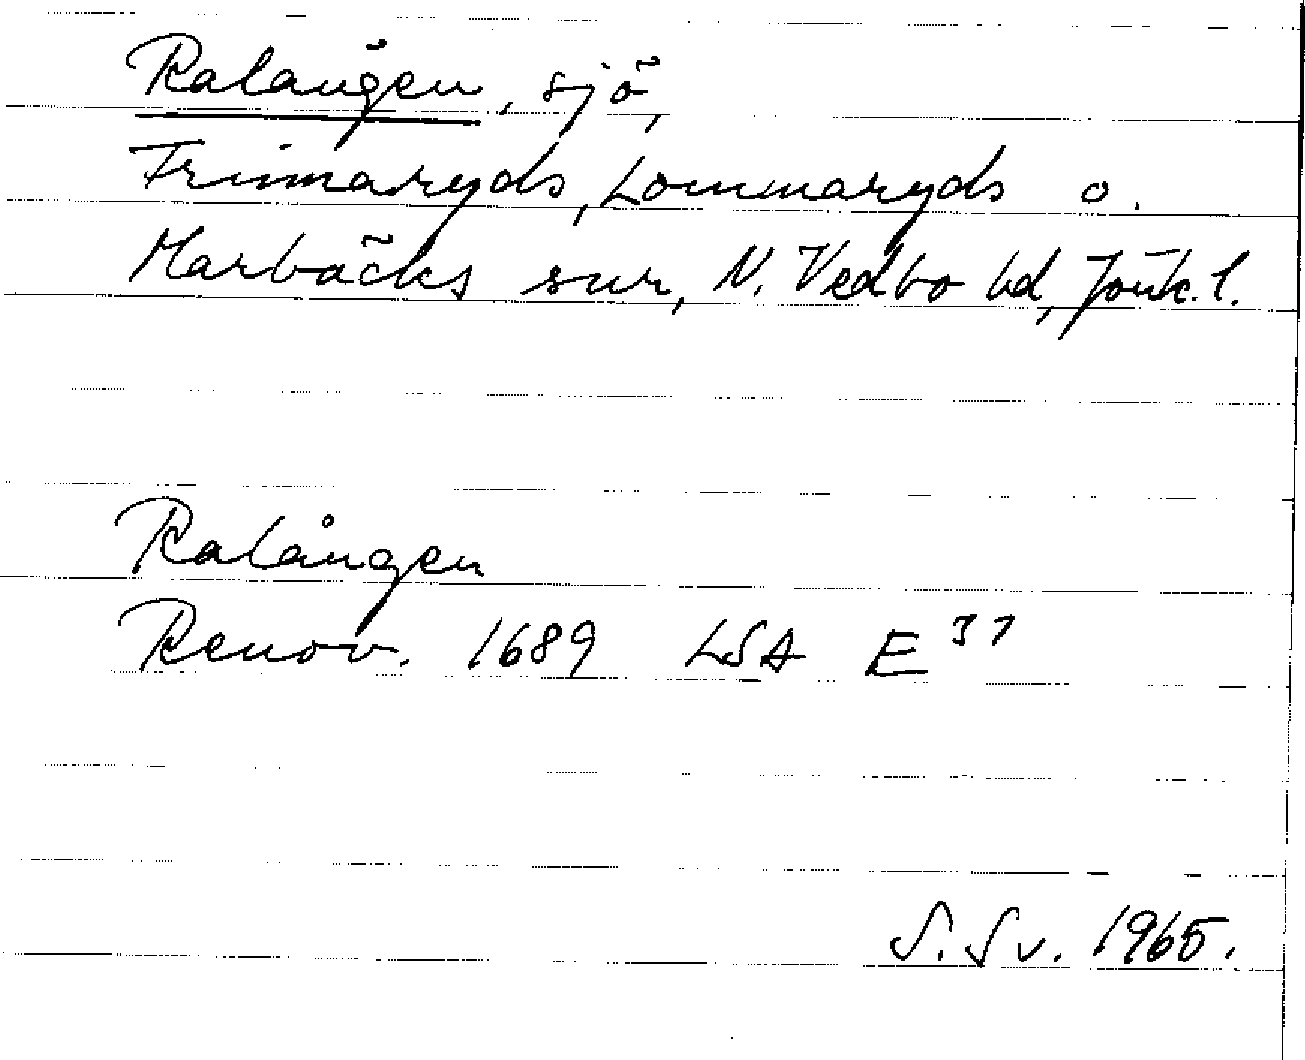 Ralången, sjö,
Frinnaryds, Lommaryds o.
Marbäcks snr, N. Vedbo hd, Jönk. l.
Ralången
Renov. 1689 LSA E 37
S. Sv. 1965.